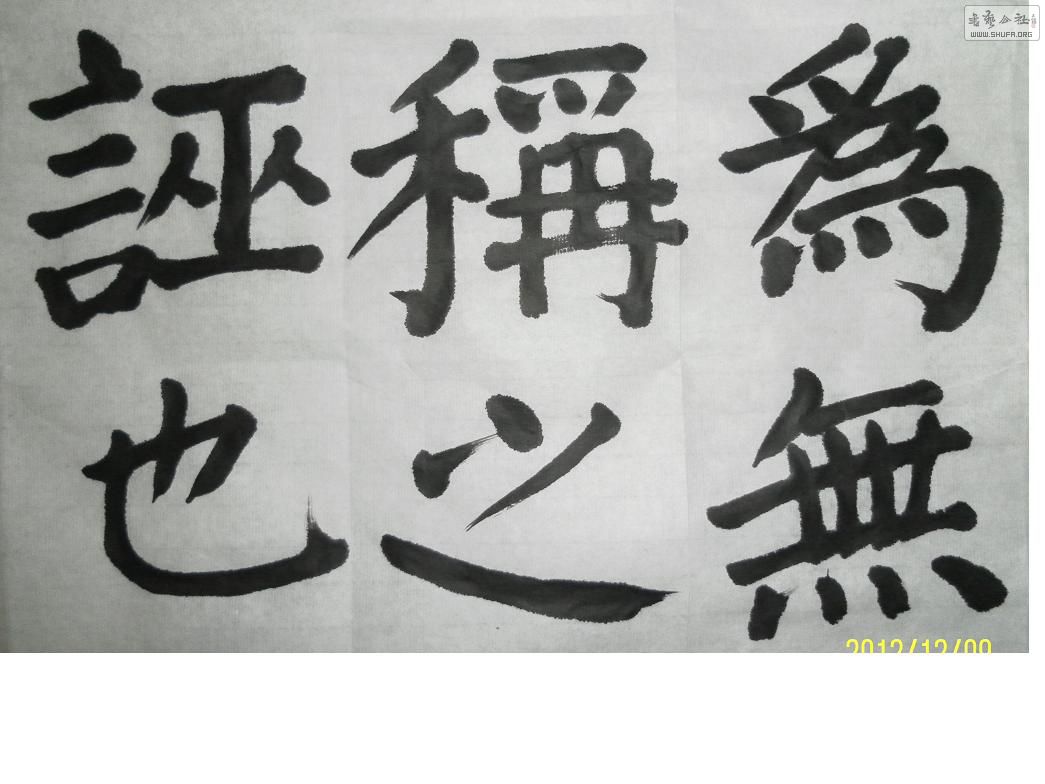 為無
稱之
誣也
書藝公社
WWW.SHUFA.ORG
2012/12/09